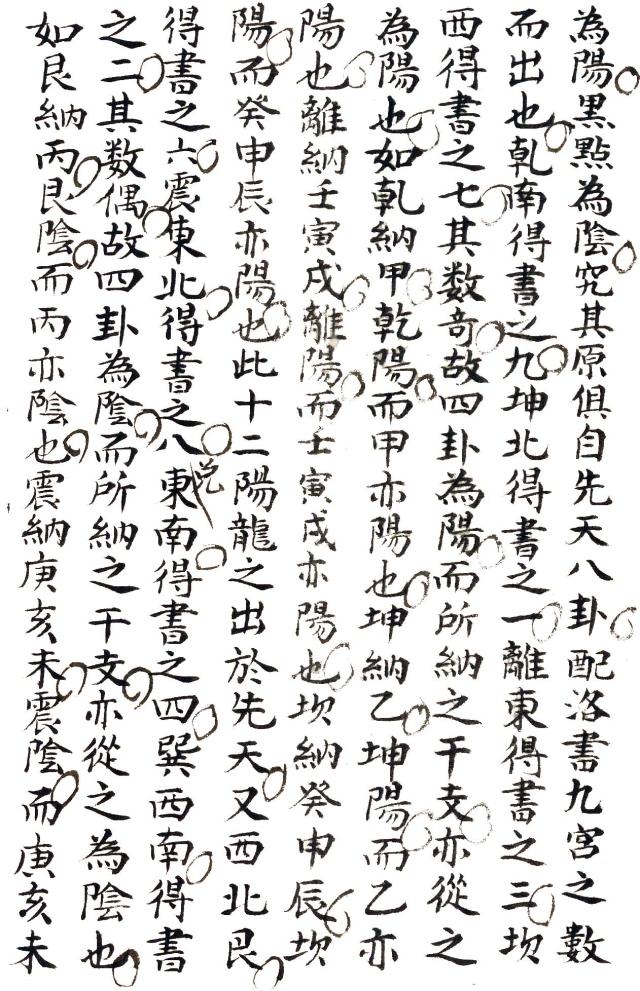 為陽黒點為陰究其原俱自先天八卦配洛書九宮之數
而出也乹南得書之九坤北得書之一離東得書之三坎
西得書之七其数奇故四卦為陽而所納之干支亦從之
為陽也如乹納甲乾陽而甲亦陽也坤納乙坤陽而乙亦
陽也離納壬寅戌離陽而壬寅戌亦陽也坎納癸申辰坎
陽而癸申辰亦陽也此十二陽龍之出於先天又西北艮
得書之六震東北得書之八兌東南得書之四巽西南得書
之二其数偶故四卦為陰而所納之干支亦從之為陰也
如艮納丙艮陰而丙亦陰也震納庚亥未震陰而庚亥未